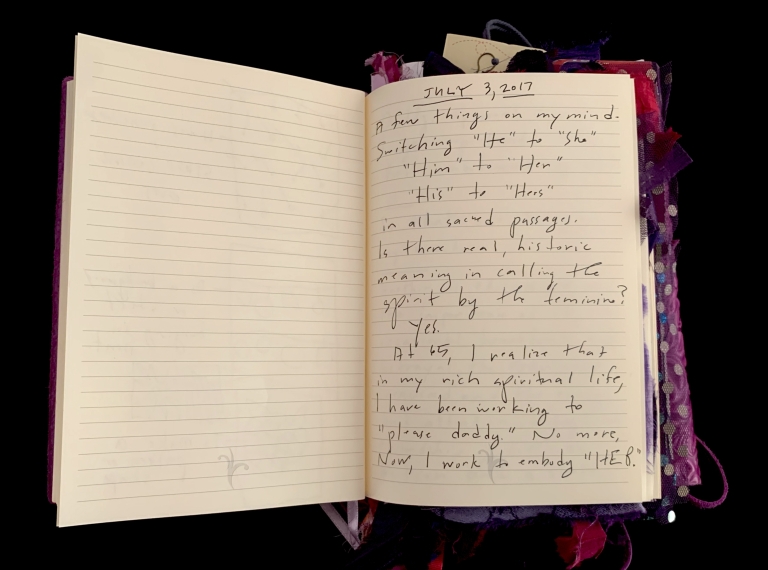 JULY 3, 2017
A few things on my mind.
Switching "He" to "She"
"Him" to "Her"
"His" to "Hers"
in all sacred passages.
Is there real, historic
meaning in calling the
spirit by the feminine?
Yes.
At 65, I realize that
in my rich spiritual life,
I have been working to
"please daddy." No more,
Now, I work to embody "HER."